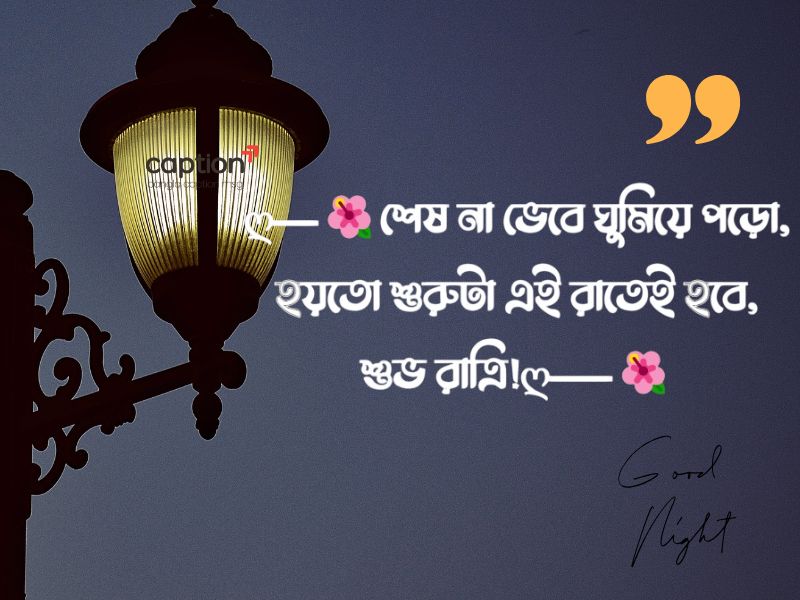 caption
bangla caption msg
ღ── 🌺 শেষ না ভেবে ঘুমিয়ে পড়ো,
হয়তো শুরুটা এই রাতেই হবে,
শুভ রাত্রি!ღ── 🌺
Good
Night